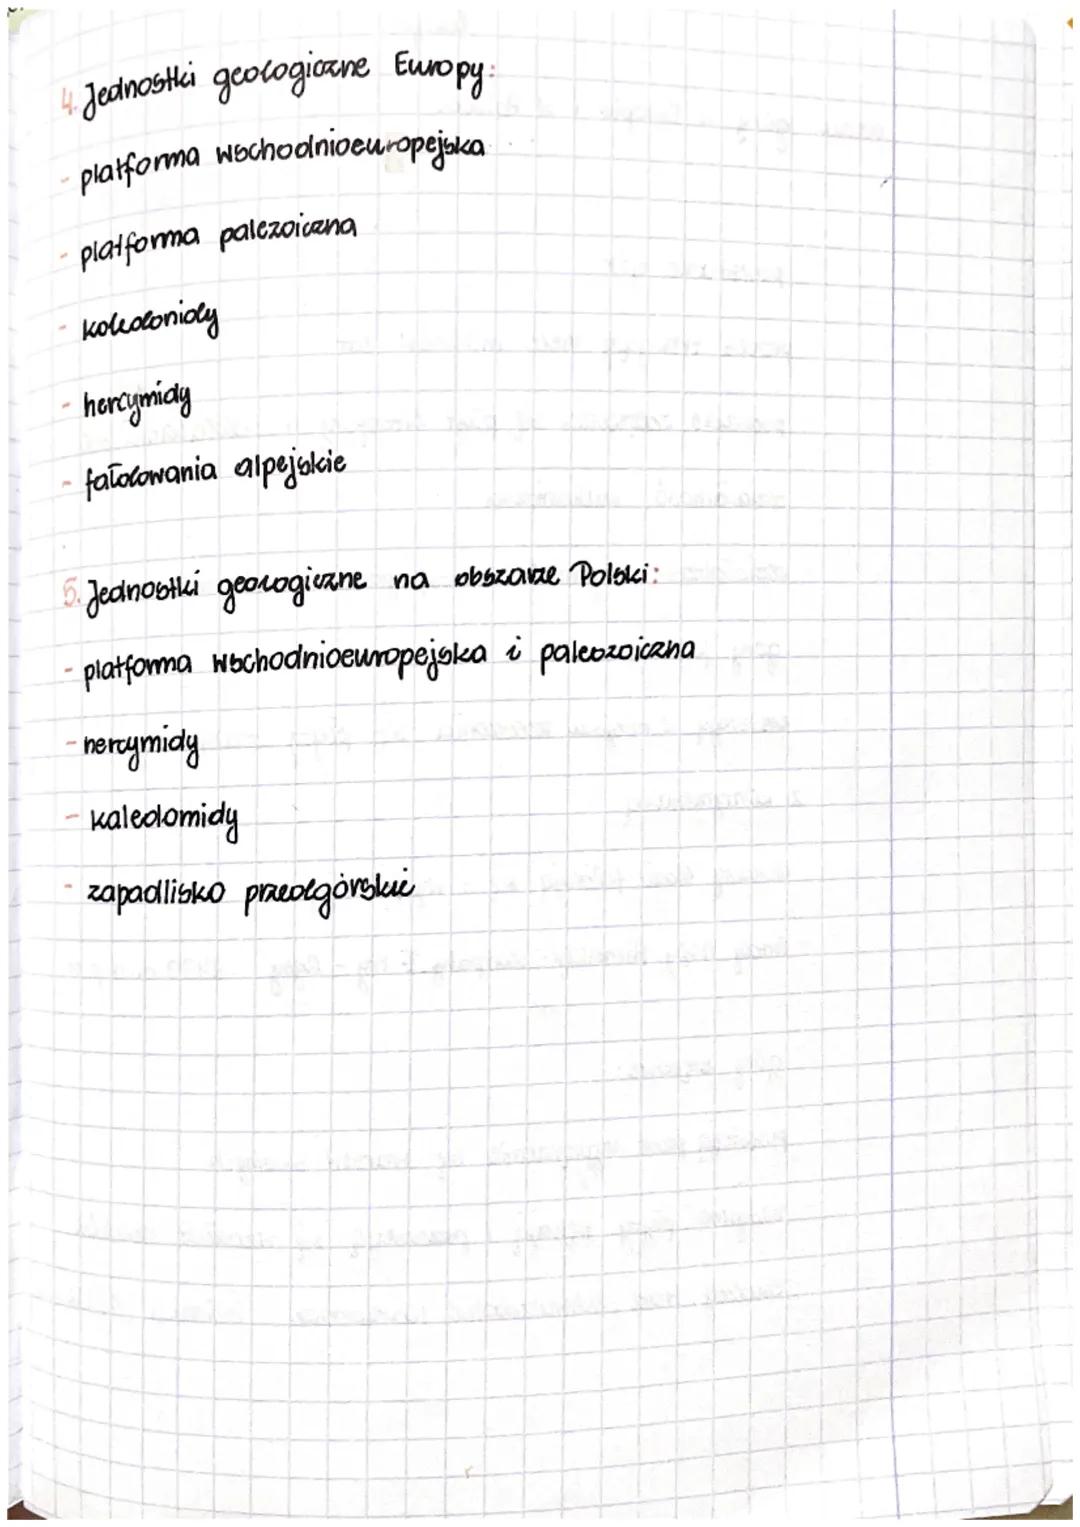 4. Jednostki geologiczne Europy:
- platforma wschodnioeuropejska
- platforma palezoiczna
- koledonidy
- hercymidy
- fałdowania alpejskie
5. Jednostki geologiczne na obszarze Polski:
- platforma wschodnioeuropejska i paleozoiczna
- hercymidy
- kaledomidy
- zapadlisko przedgórskie